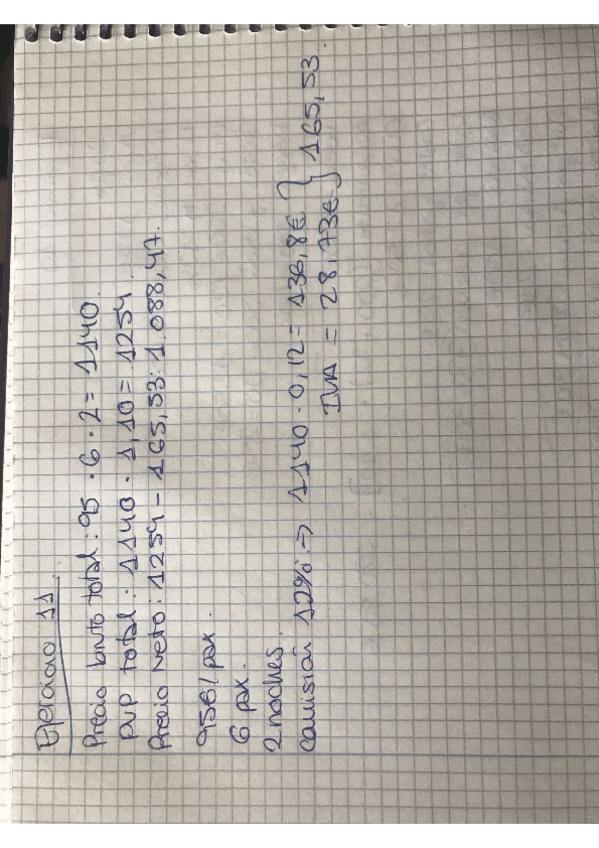 Ejercicio 11
Precio bruto total: 95 · 6 · 2 = 1140.
PVP total: 1140 · 1,10 = 1254.
Precio Neto: 1254 - 165,53: 1.088,47.
95€/ pax.
6 pax.
2 noches.
Comisión 12% => 1140 · 0,12 = 136,8€ } 165,53.
IVA = 28,73€